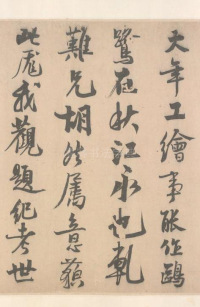 大年工繪事張作鷗
鷺在秋江永也孰
難兄胡然屬意
此尨我觀題紀考世